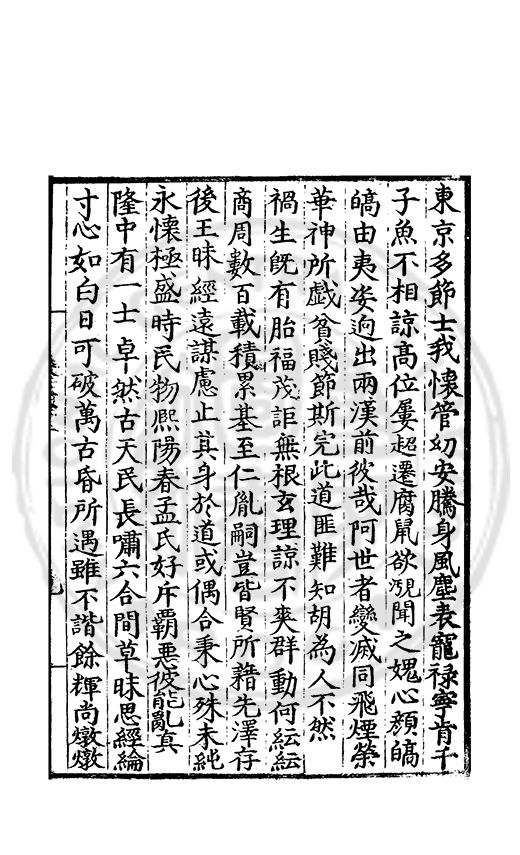 東京多節士我懷管幼安騰身風塵表寵祿寧肯干
子魚不相諒高位屢超遷腐䑕欲凂聞之媿心顏皜
皜由夷姿逈出兩漢前彼哉阿世者變滅同飛煙榮
華神所戲貧賤節斯完此道匪難知胡為人不然
禍生旣有胎福茂詎無根玄理諒不爽群動何紜紜
商周數百載積累基至仁胤嗣豈皆賢所藉先澤存
後王昧經遠謀慮止其身於道或偶合秉心殊未純
永懷極盛時民物熙陽春孟氏好斥霸悪彼能亂真
隆中有一士卓然古天民長嘯六合間草昧思經綸
寸心如白日可破萬古昏所遇雖不諧餘輝尚燉燉